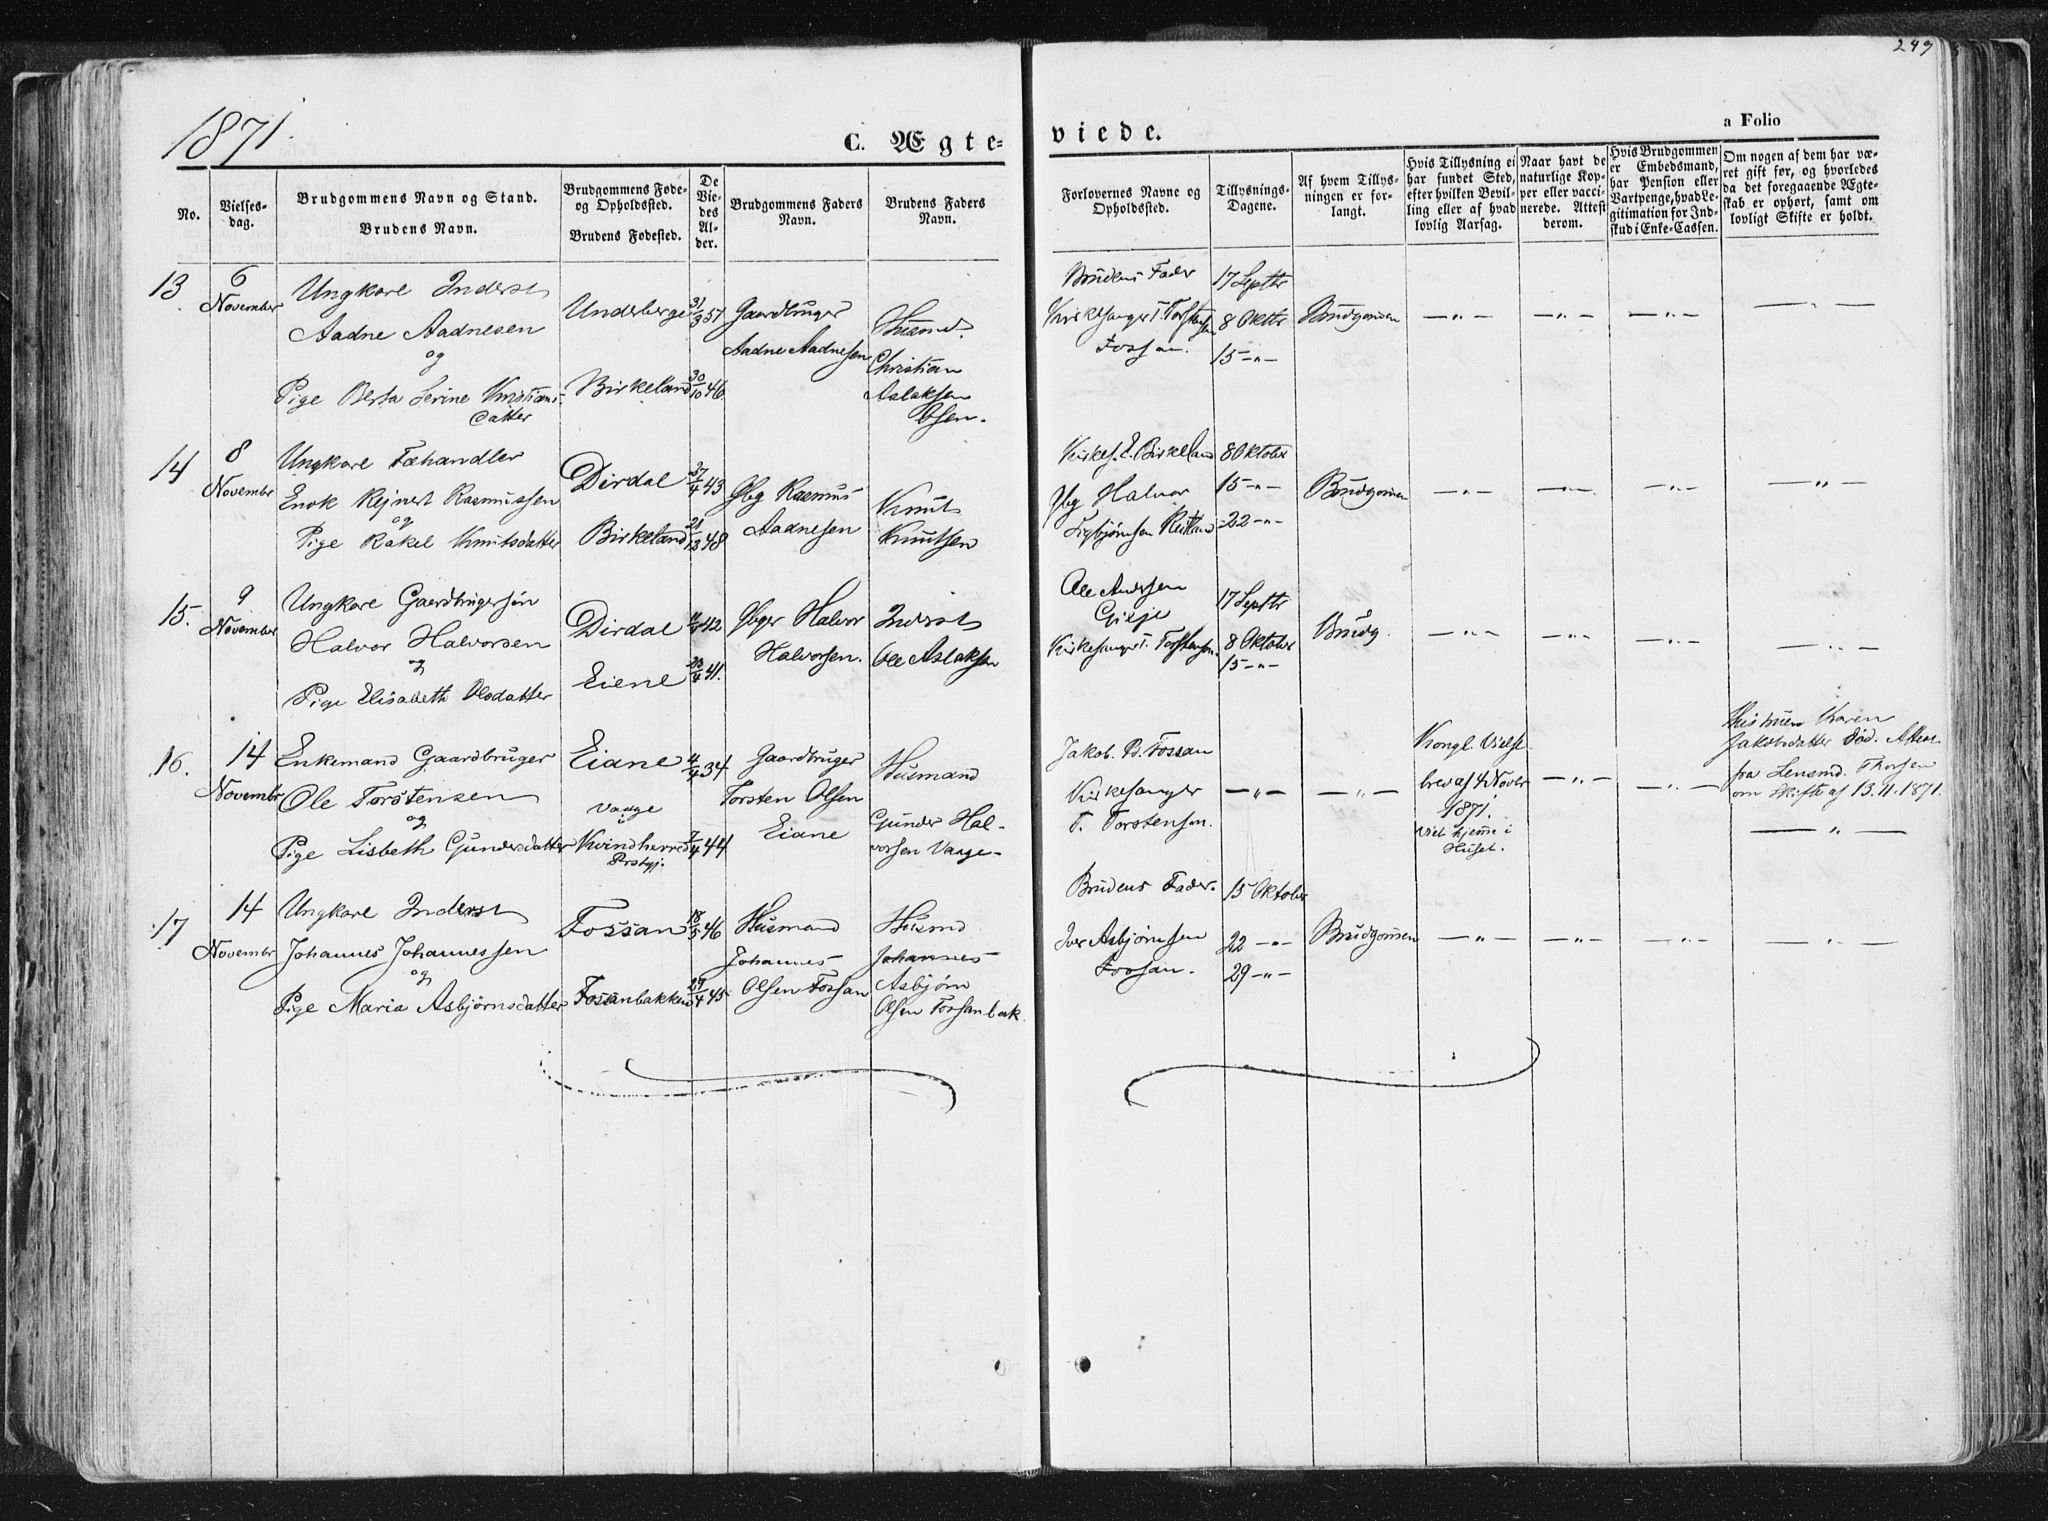 249
1871.
C. Ægte-
viede.
a Folio
No.
Vielses-
dag.
Brudgommens Navn og Stand.
Brudens Navn.
Brudgommens Føde-
og Opholdssted.
Brudens Fødested.
De
Vie-
des
Al-
der.
Brudgommens Faders
Navn.
Brudens Faders
Navn.
Forlovernes Navne og
Opholdssted.
Tillysnings-
Dagene.
Af hvem Tillys-
ningen er for-
langt.
Hvis Tillysning ei
har fundet Sted,
efter hvilken Bevil-
ling eller af hvad
lovlig Aarsag.
Naar havt de
naturlige Kop-
per eller vacci-
nerede. Attest
derom.
Hvis Brudgommen
er Embedsmand,
har Pension eller
Vartpenge, hvad Le-
gitimation for Ind-
skud i Enke-Cassen.
Om nogen af dem har væ-
ret gift før, og hvorledes
da det foregaaende Ægte-
skab er ophørt, samt om
lovligt Skifte er holdt.
13
6
November
Ungkare Inderst
Aadne Aadnesen
og
Pige Berta Serine Kristians-
datter
Underberge
Birkeland
31/3 57
30/10 46
Gaardbruger
Aadne Aadnesen
Husmd.
Christian
Aslaksen
Brudens Fader
Kirkesanger T. Torstensen
Fossan.
17 Septbr
8 Oktbr
15 -"-
Brudgomen
-"- -"- -"- -"-
14
8
Novembr
Ungkare Fæhandler
Enok Rejnert Rasmussen
og
Pige Rakel Knutsdatter
Dirdal
Birkeland
27/4 43
21/12 48
Gbg Rasmus
Aadnesen
Knut
Knutsen
Kirkes. E. Birkeland
Gbg Halvor
Sigbjørnsen
8 Oktober
15 -"-
22 -"-
Brudgomen
-"- -"- -"- -"-
15.
9
November
Ungkare Gaardbrugersøn
Halvor Halvorsen
og
Pige Elisabeth Olsdatter
Dirdal
Eiene
42
20/4 41.
Gbger Halvor
Halvorsen.
Inderst
Ole Aslaksen
Ole Andersen
Gilje
Kirkesanger T. Torstensen.
17 Septbr
8 Oktober
15 -"-
Brudg.
-"- -"- -"- -"-
16.
14
Novembr
Enkemand Gaardbruger
Ole Torstensen
og
Pige Lisbeth Gundersdatter
Eiane
Vaage
i
Kvindherred
Prstgj.
4/4 34
7/4 44
Gaardbruger
Torsten Olsen
Eiane
Husmand
Gunder Hal-
vorsen Vaage-
Jakob. B. Fossan
Kirkesanger
T. Torstensen.
-"- -"-
Kongl. Vielse-
brev af 4 Novbr
1871.
Viet hjeme i
Huset.
-"- -"-
Hustruen Karen
Jakobsdatter død. Attest
fra Lensmd. Thorsen
om Skifte af 13.11.1871.
-"-
17
14
Novembr
Ungkare Inderst
Johannes Johannessen
og
Pige Maria Asbjørnsdatter
Fossan
Fossanbakken
18/5 46
29/4 45
Husmand
Johannes
Olsen Fossan
Husmd
Johannes
Asbjørn
Olsen Fossanbak
Brudens Fader.
Iver Asbjørnsen
Fossan.
15 Oktober
22 -"-
29 -"-
Brudgomen
-"- -"- -"- -"-